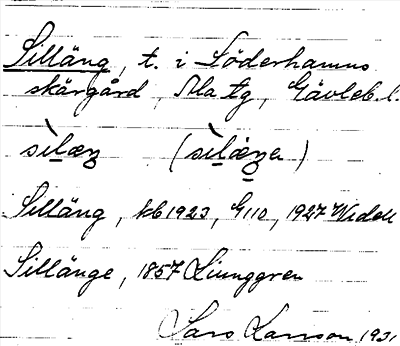 Silläng, t. i Söderhamns
skärgård, Ala tg, Gävleb. l.
sìlæŋ (sìlæŋa)
Silläng, kb 1923, G110, 1927 Widell
Sillänge, 1857 Ljunggren
Lars Larsson 1931